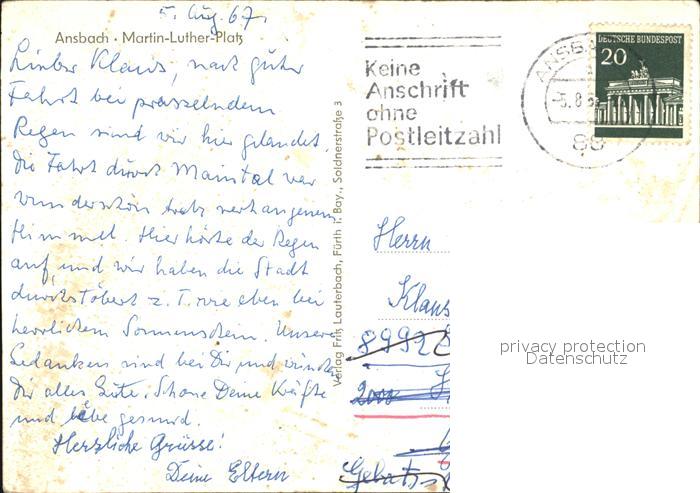 5. Aug. 67.
Ansbach · Martin-Luther-Platz
Lieber Klaus, nach guter
Fahrt bei prasselndem
Regen sind wir hier gelandet.
Die Fahrt durchs Maintal war
wunderschön trotz verhangenem
Himmel. Hier hörte der Regen
auf, und wir haben die Stadt
durchstöbert z. T. wie eben bei
herrlichem Sonnenschein. Unsere
Gedanken sind bei Dir und wünschen
Dir alles Gute. Schone Deine Kräfte
und lebe gesund.
Herzliche Grüsse!
Deine Eltern
Verlag Fritz Lauterbach, Fürth i. Bay., Soldnerstraße 3
Keine
Anschrift
ohne
Postleitzahl
ANSBA
-5.8.
88
DEUTSCHE BUNDESPOST
20
Herrn
Klaus
8992
2000
privacy protection
Datenschutz